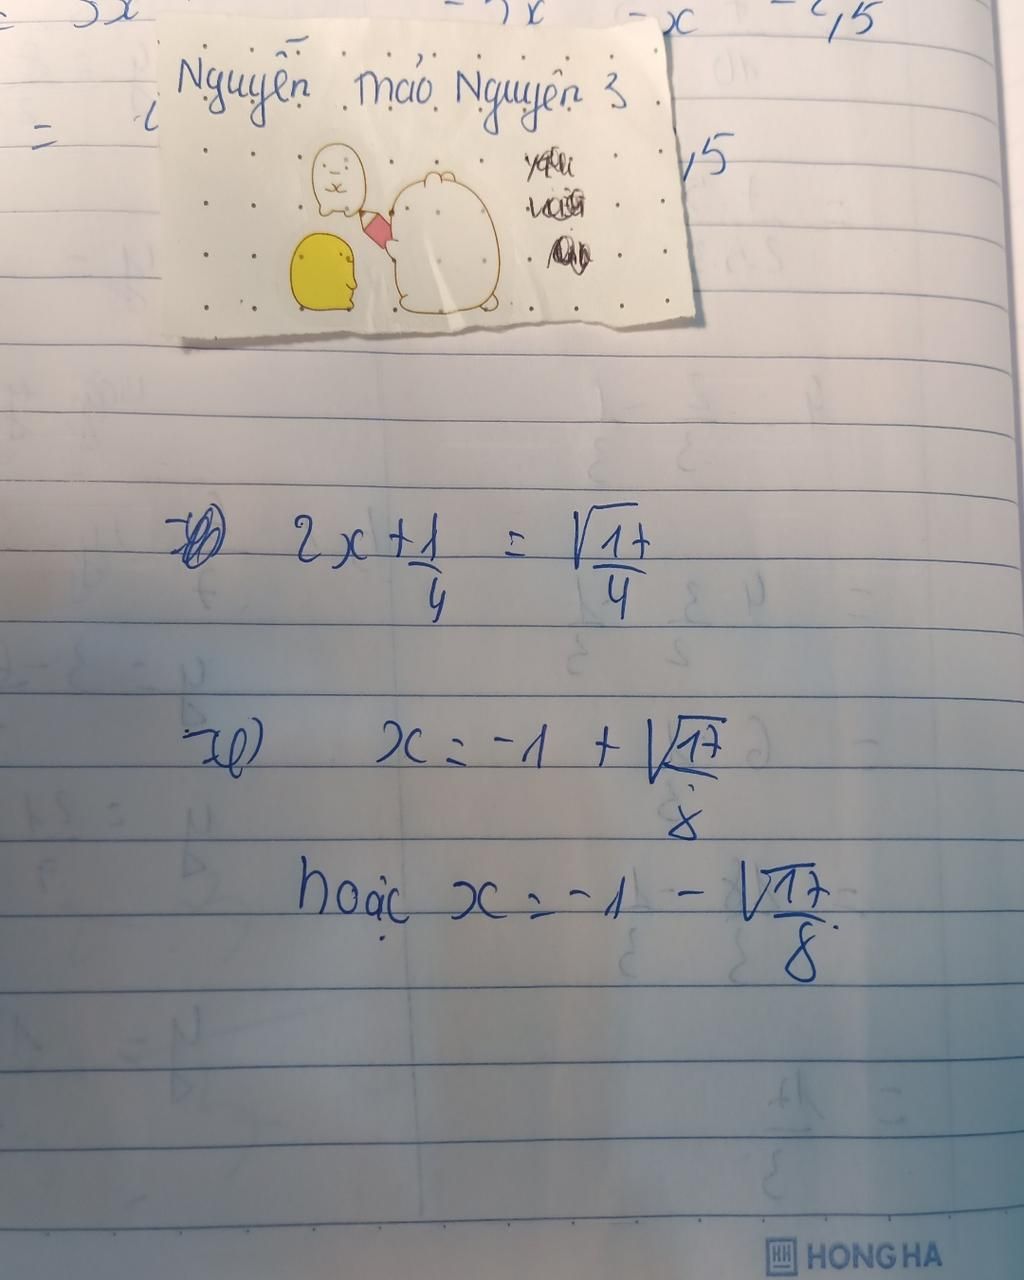 = 3x - 3x - x - 2,5
Nguyễn Thảo Nguyên 3
= ,5
2x + 1/4 = √17/4
x = -1 + √17/8
hoặc x = -1 - √17/8
HH HONG HA